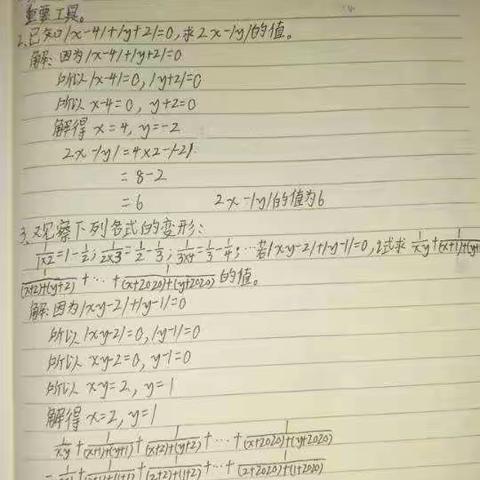 重要工具。
2.已知|x-4|+|y+2|=0,求2x-|y|的值。
解:因为|x-4|+|y+2|=0
所以|x-4|=0,|y+2|=0
所以x-4=0, y+2=0
解得 x=4, y=-2
2x-|y|=4×2-|-2|
=8-2
=6 2x-|y|的值为6
3.观察下列各式的变形:
1/1×2=1-1/2; 1/2×3=1/2-1/3; 1/3×4=1/3-1/4;…若|xy-2|+|y-1|=0,试求 1/xy+1/(x+1)+(y+
1/(x+2)+(y+2)+…+1/(x+2020)+(y+2020)的值。
解:因为|xy-2|+|y-1|=0
所以|xy-2|=0,|y-1|=0
所以 xy-2=0, y-1=0
所以 xy=2, y=1
解得x=2, y=1
1/xy+1/(x+1)+(y+1)+1/(x+2)+(y+2)+…+1/(x+2020)+(y+2020)